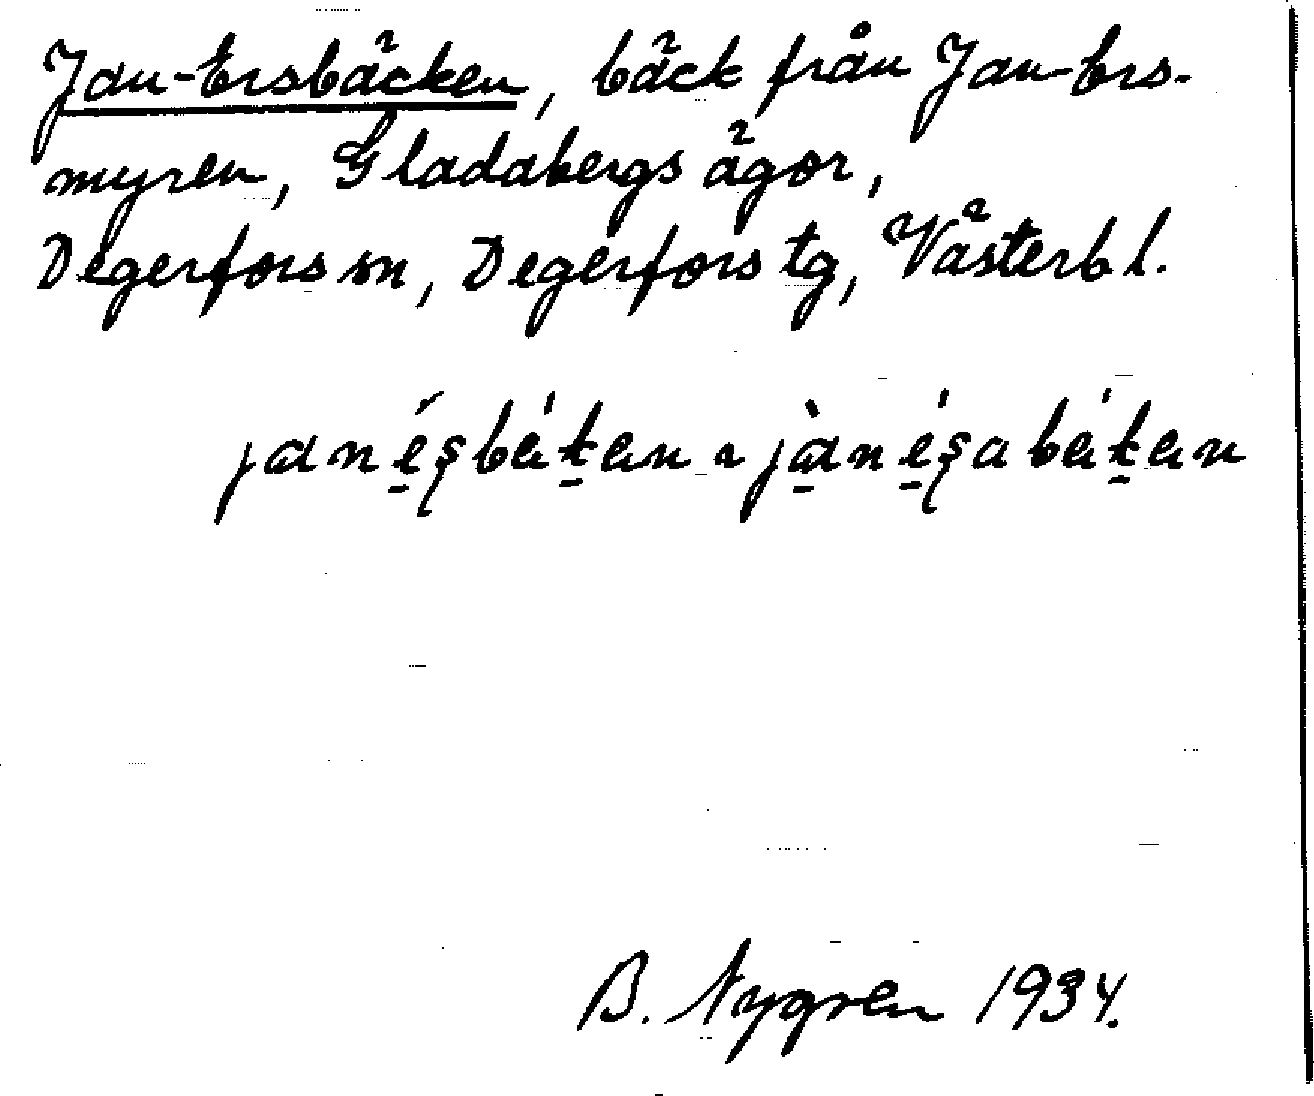 Jan-Ersbäcken, bäck från Jan-Ers-
myren, Gladabergs ägor,
Degerfors sn, Degerfors tg, Västerb l.
janésbéten ~ jànésabéten
B. Nygren 1934.